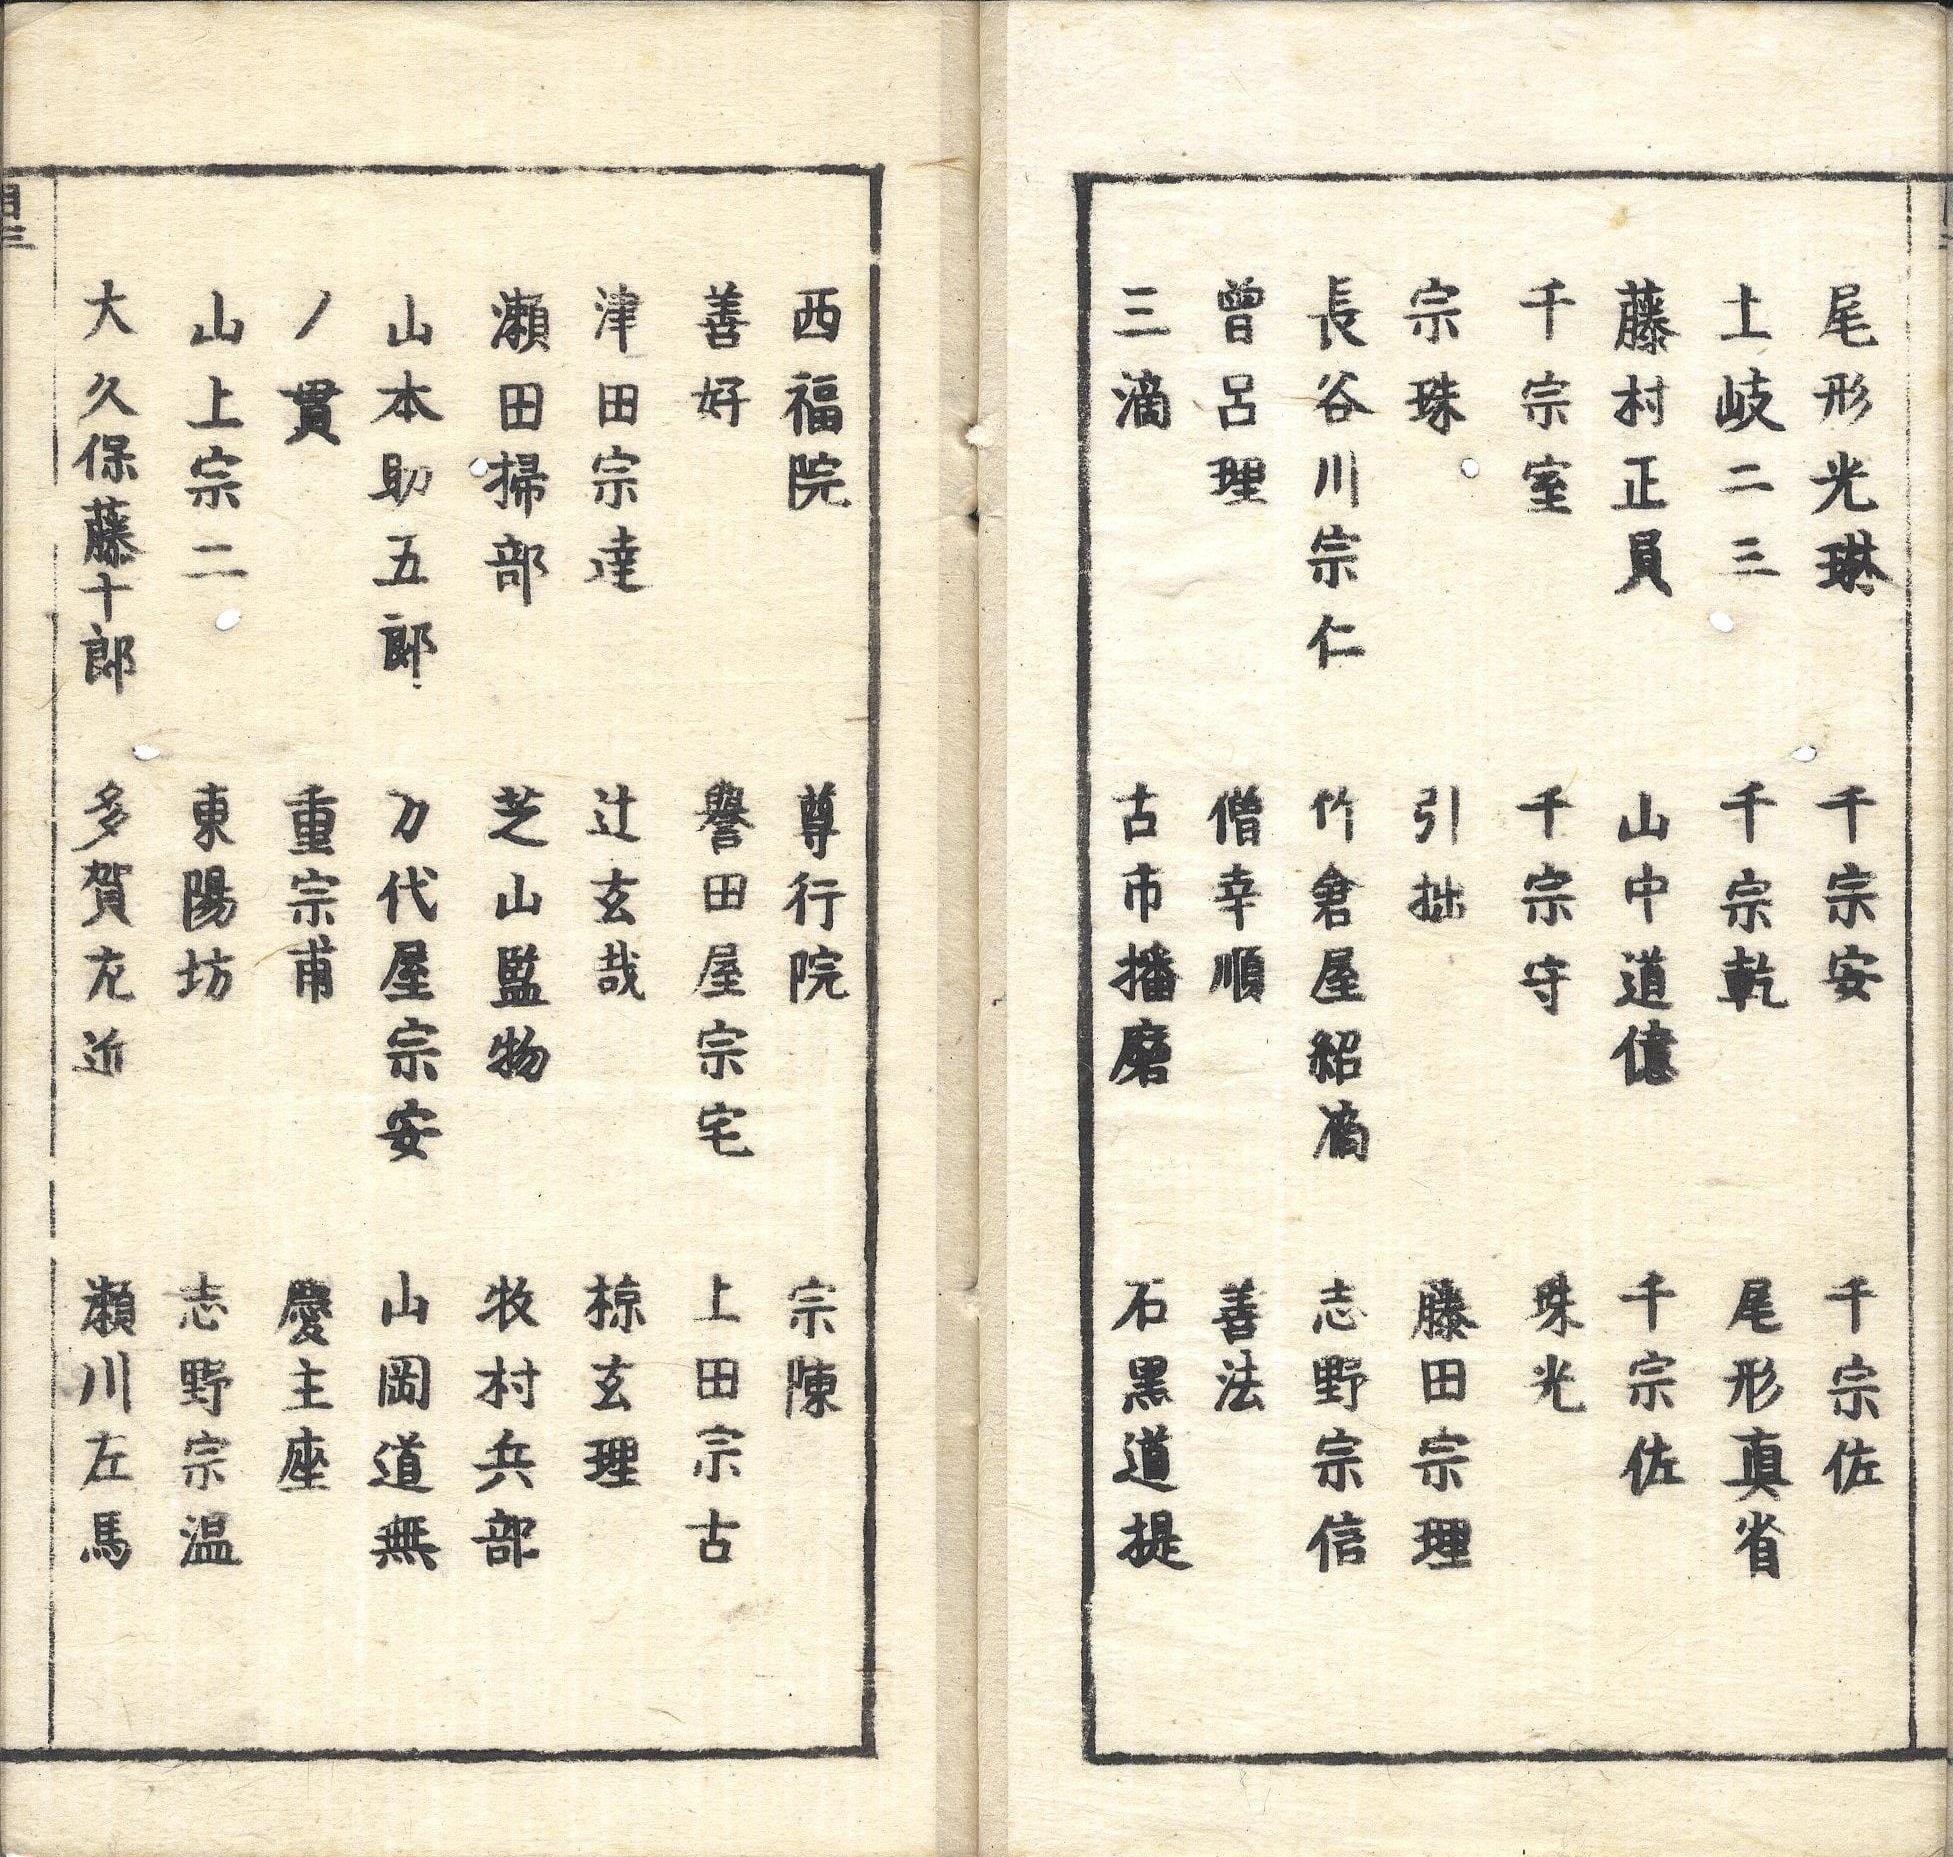 尾形光琳　千宗安　千宗佐
土岐二三　千宗乾　尾形真省
藤村正員　山中道億　千宗佐
千宗室　千宗守　珠光
宗珠　引拙　藤田宗理
長谷川宗仁　竹倉屋紹滴　志野宗信
曾呂理　僧幸順　善法
三滴　古市播磨　石黒道提
西福院　尊行院　宗陳
善好　譽田屋宗宅　上田宗古
津田宗達　辻玄哉　椋玄理
瀬田掃部　芝山監物　牧村兵部
山本助五郎　万代屋宗安　山岡道無
ノ貫　重宗甫　慶主座
山上宗二　東陽坊　志野宗温
大久保藤十郎　多賀左近　瀬川左馬